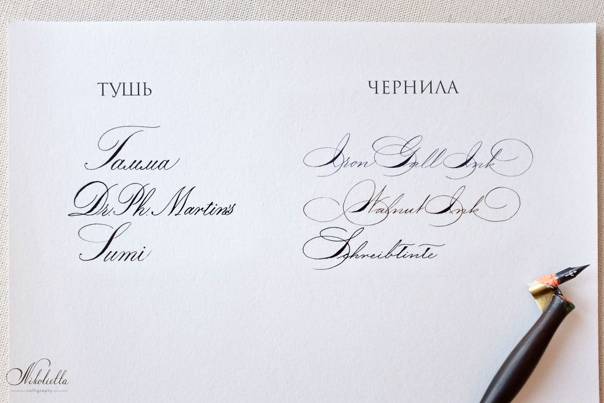 ТУШЬ
Гамма
Dr. Ph. Martin's
Sumi
ЧЕРНИЛА
Iron Gall Ink
Walnut Ink
Schreibtinte
Nikoliella
calligraphy